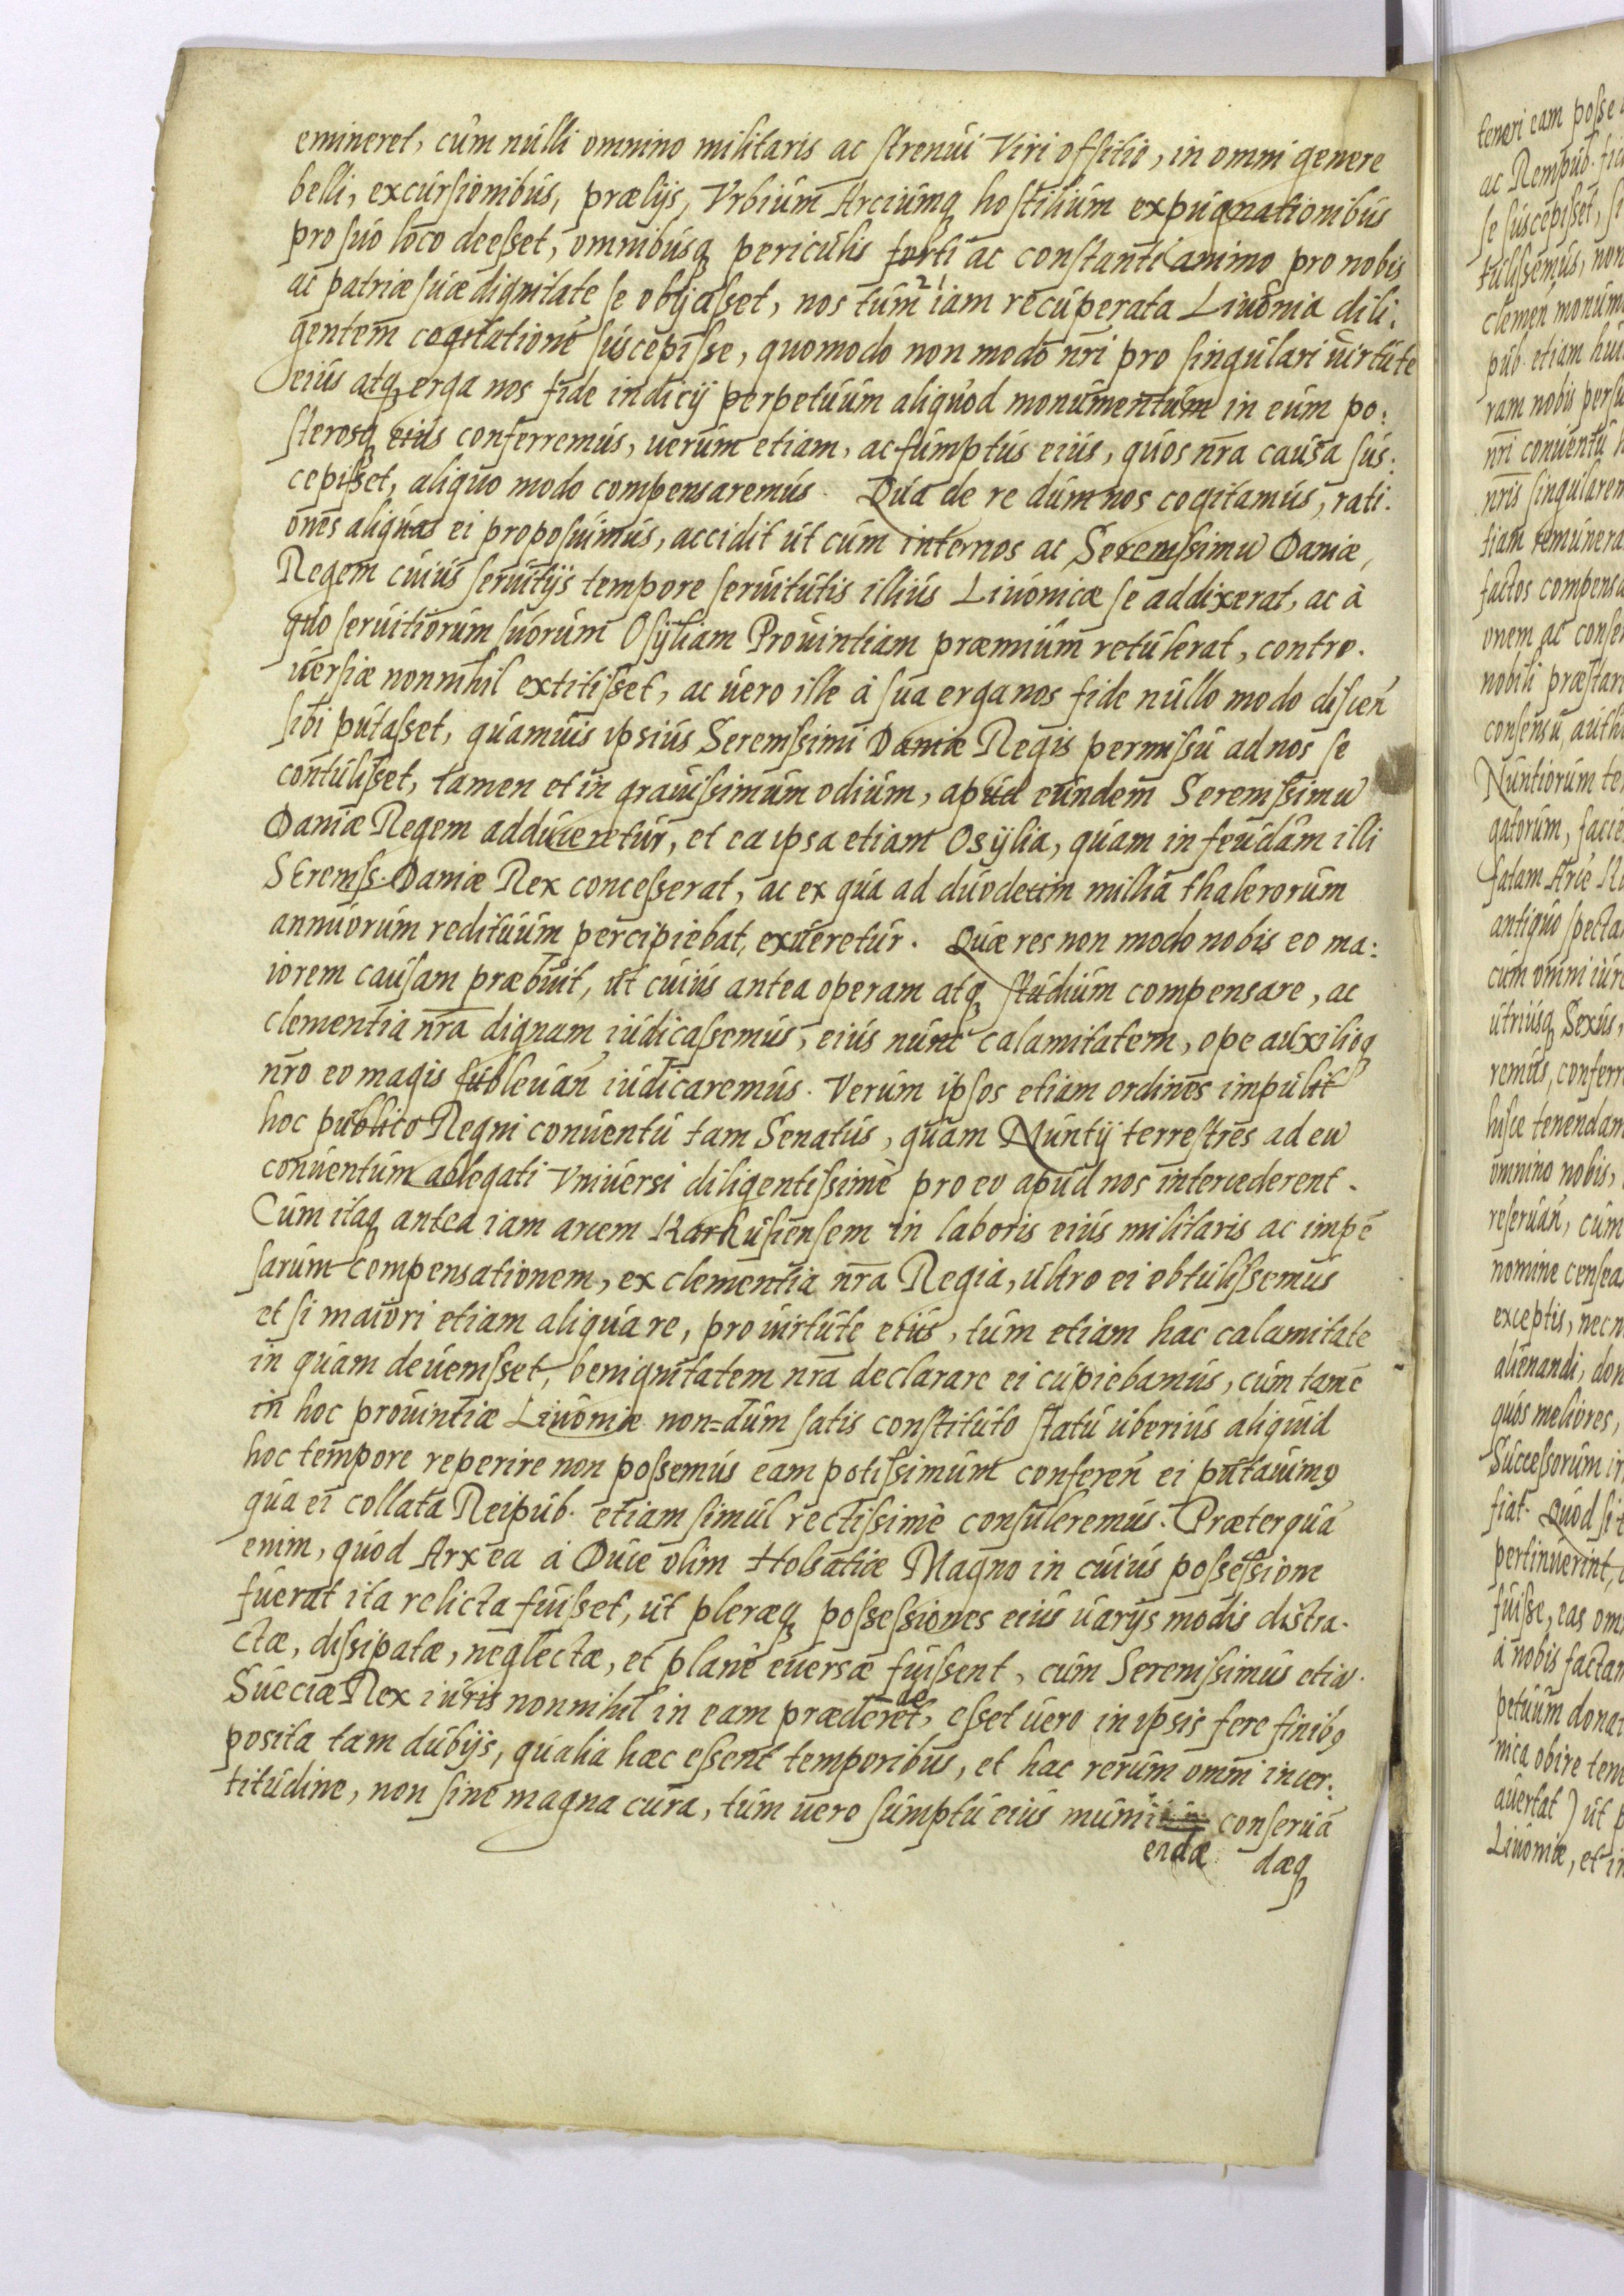 emineret, cum nulli omnino militaris ac strenui Viri offitio, in omni genere
belli, excursionibus, prælijs, Vrbium Arciumq hostilium expugnationibus
pro suo loco deesset, omnibusq periculis forti ac constanti animo pro nobis
ac patriæ suæ dignitate se obijcisset, nos tum iam recuperata Liuonia dili:
gentem cogitationē suscepisse, quomodo non modo nr̄i pro singulari uirtute
eius atq erga nos fide indicij perpetuum aliquod monumentum in eum po:
sterosq eius conferremus, uerum etiam, ac sumptus eius, quos nr̄a causa sus:
cepisset, aliquo modo compensaremus. Qua de re dum nos cogitamus, rati:
ones aliquas ei proposuimus, accidit ut cum inter nos ac Serenissimū Daniæ,
Regem cuius seruitijs tempore seruitutis illius Liuonicæ se addixerat, ac à
quo seruitiorum suorum Osyliam Prouintiam præmium retulerat, contro.
uersiæ nonnihil extitisset, ac uero ille à sua erga nos fide nullo modo discēn
sibi putasset, quamuis ipsius Serenissimi Daniæ Regis permissu ad nos se
contulisset, tamen et in grauissimum odium, apud eundem Serenissimū
Daniæ Regem adduceretur, et ea ipsa etiam Osylia, quam in feudam illi
Sereniss. Daniæ Rex concesserat, ac ex qua ad duodecim millia thalerorum
annuorum redituum percipiebat, exueretur. Quæ res non modo nobis eo ma:
iorem causam præbuit, ut cuius antea operam atq studium compensare, ac
clementia nr̄a dignam iudicassemus, eius nunc calamitatem, ope auxilioq
nr̄o eo magis subleuan̄ iudicaremus. Verum ipsos etiam ordines impulit
hoc publico Regni conuentu tam Senatus, quam Nuntij terrestres ad eū
conuentum ablegati Vniuersi diligentissimè pro eo apud nos intercederent.
Cum itaq antea iam arcem Karkusiensem in laboris eius militaris ac impē
sarum compensationem, ex clementia nr̄a Regia, ultro ei obtulissemus
et si maiori etiam aliqua re, pro uirtute eius, tum etiam hac calamitate
in quam deuenisset, benignitatem nr̄a declarare ei cupiebamus, cum tamē
in hoc prouintiæ Liuoniæ non=dum satis constituto statu uberius aliquid
hoc tempore reperire non possemus eam potissimum conferen̄ ei putauimꝰ
qua ei collata Reipub. etiam simul rectissimè consuleremus. Præterquā
enim, quod Arx ea à Duce olim Holsatiæ Magno in cuius possessione
fuerat ita relicta fuisset, ut pleræq possessiones eius uarijs modis distra.
ctæ, dissipatæ, neglectæ, et planè euersæ fuissent, cum Serenissimus etiā.
Sueciæ Rex iuris nonnihil in eam præderet, esset uero in ipsis fere finibꝰ
posita tam dubijs, qualia hæc essent temporibus, et hac rerum omni incer:
titudine, non sine magna cura, tum uero sumptu eius muni conseruā
endæ dæq